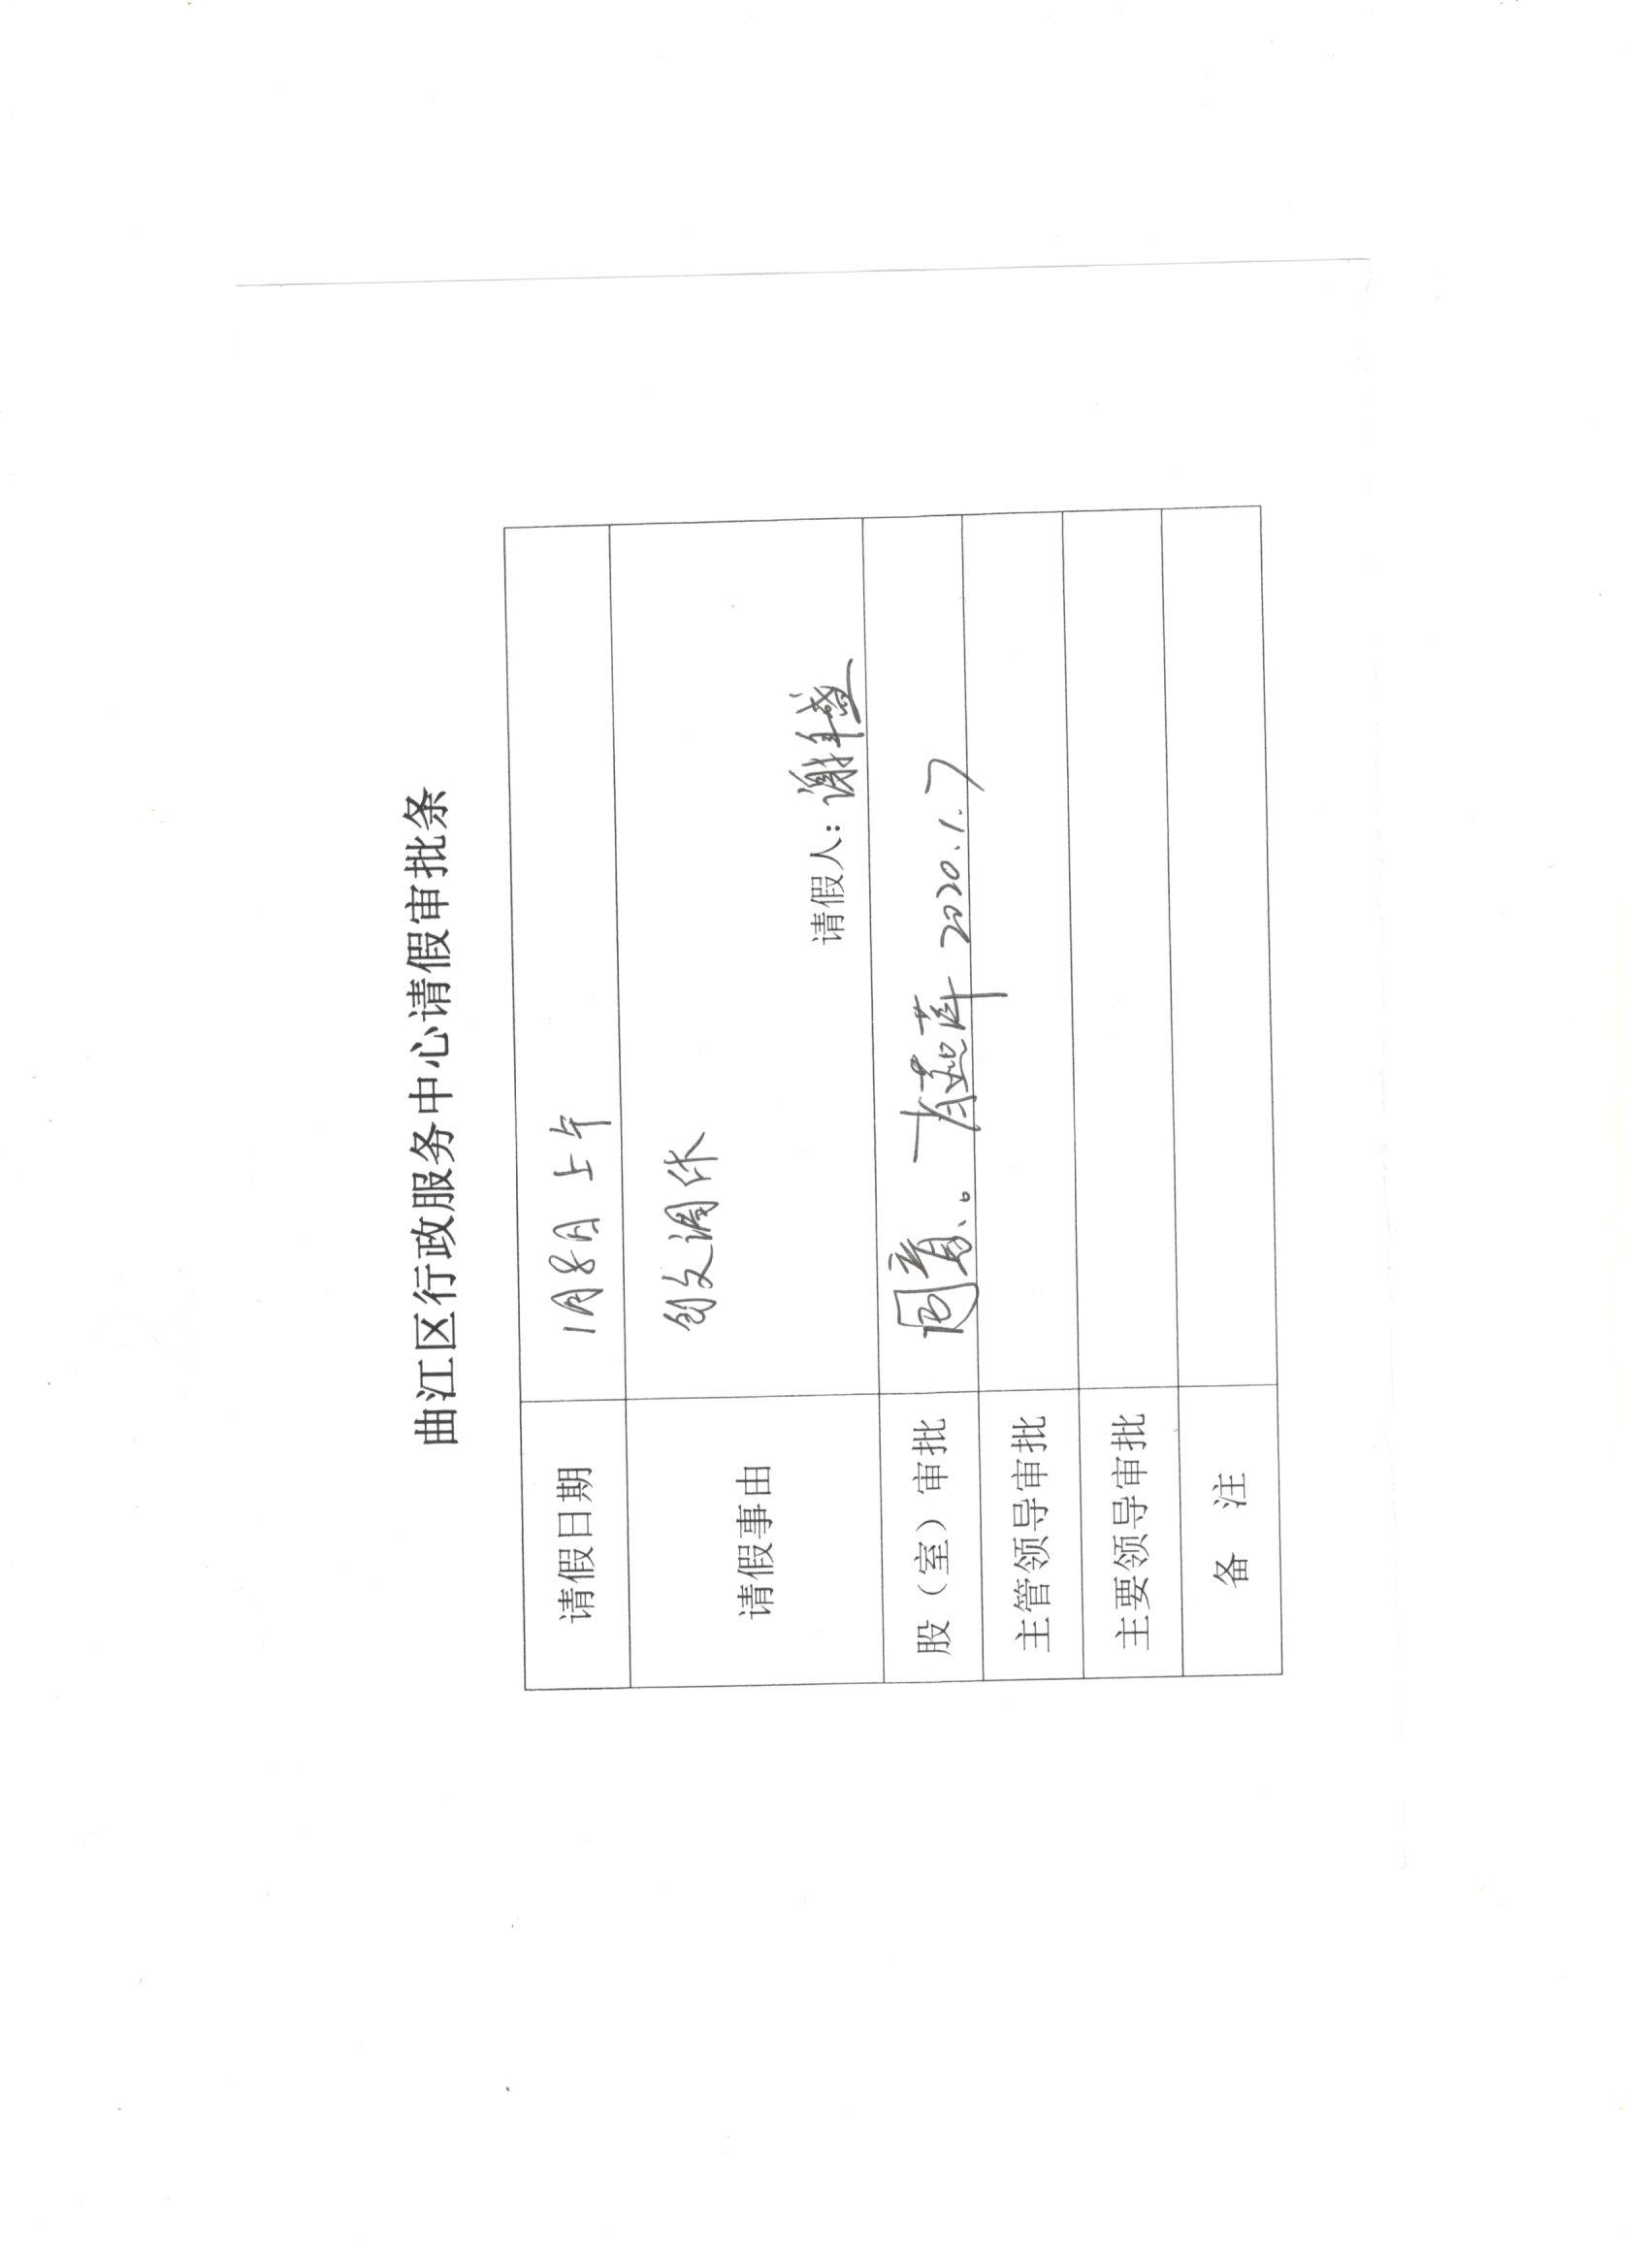 曲江区行政服务中心请假审批条
请假日期 1月8日 上午
请假事由 调休
请假人：谢
股（室）审批 同意。 2020.1.7
主管领导审批
主要领导审批
备 注